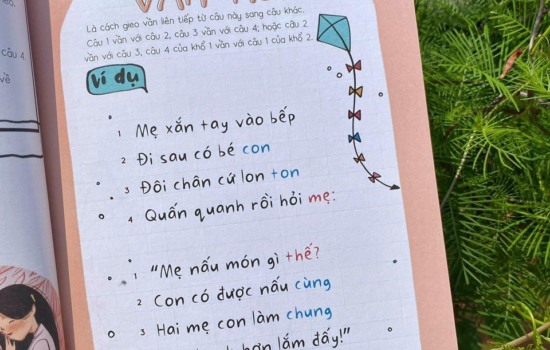 Là cách gieo vần liên tiếp từ câu này sang câu khác.
Câu 1 vần với câu 2, câu 3 vần với câu 4; hoặc câu 2
vần với câu 3, câu 4 của khổ 1 vần với câu 1 của khổ 2.
Ví dụ
1 Mẹ xắn tay vào bếp
2 Đi sau có bé con
3 Đôi chân cứ lon ton
4 Quấn quanh rồi hỏi mẹ:
1 "Mẹ nấu món gì thế?
2 Con có được nấu cùng
3 Hai mẹ con làm chung
hơn lắm đấy!"
câu 4.
về